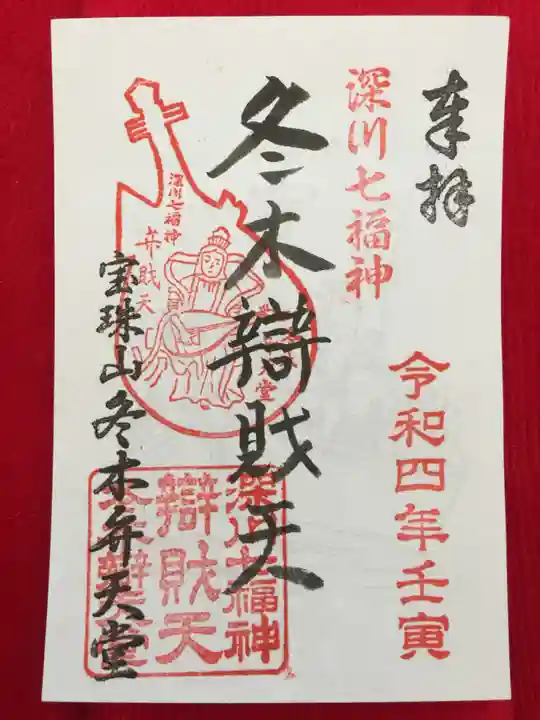 奉拝
深川七福神
令和四年壬寅
冬木辯財天
深川七福神
弁財天
宝珠山冬木弁天堂
深川七福神
辯財天
冬木辯天堂